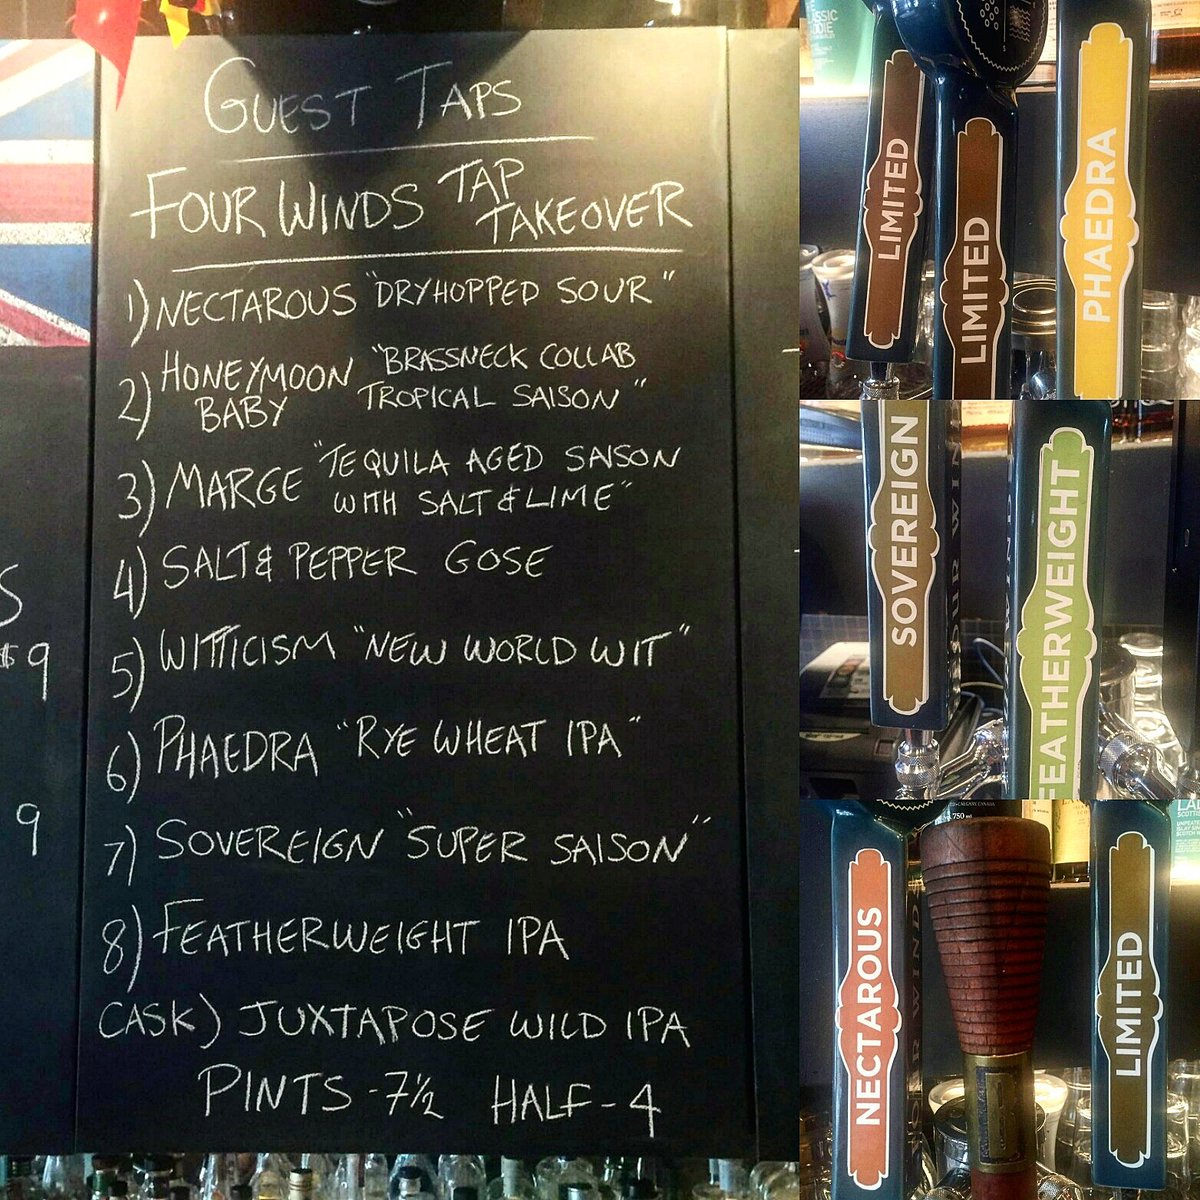 GUEST TAPS
FOUR WINDS TAP TAKEOVER
1) NECTAROUS "DRYHOPPED SOUR"
2) HONEYMOON BABY "BRASSNECK COLLAB
TROPICAL SAISON"
3) MARGE "TEQUILA AGED SAISON
WITH SALT & LIME"
4) SALT & PEPPER GOSE
5) WITTICISM "NEW WORLD WIT"
6) PHAEDRA "RYE WHEAT IPA"
7) SOVEREIGN "SUPER SAISON"
8) FEATHERWEIGHT IPA
CASK) JUXTAPOSE WILD IPA
PINTS - 7½ HALF - 4
S
9
9
LIMITED
LIMITED
PHAEDRA
SOVEREIGN
FEATHERWEIGHT
NECTAROUS
LIMITED
750 ml